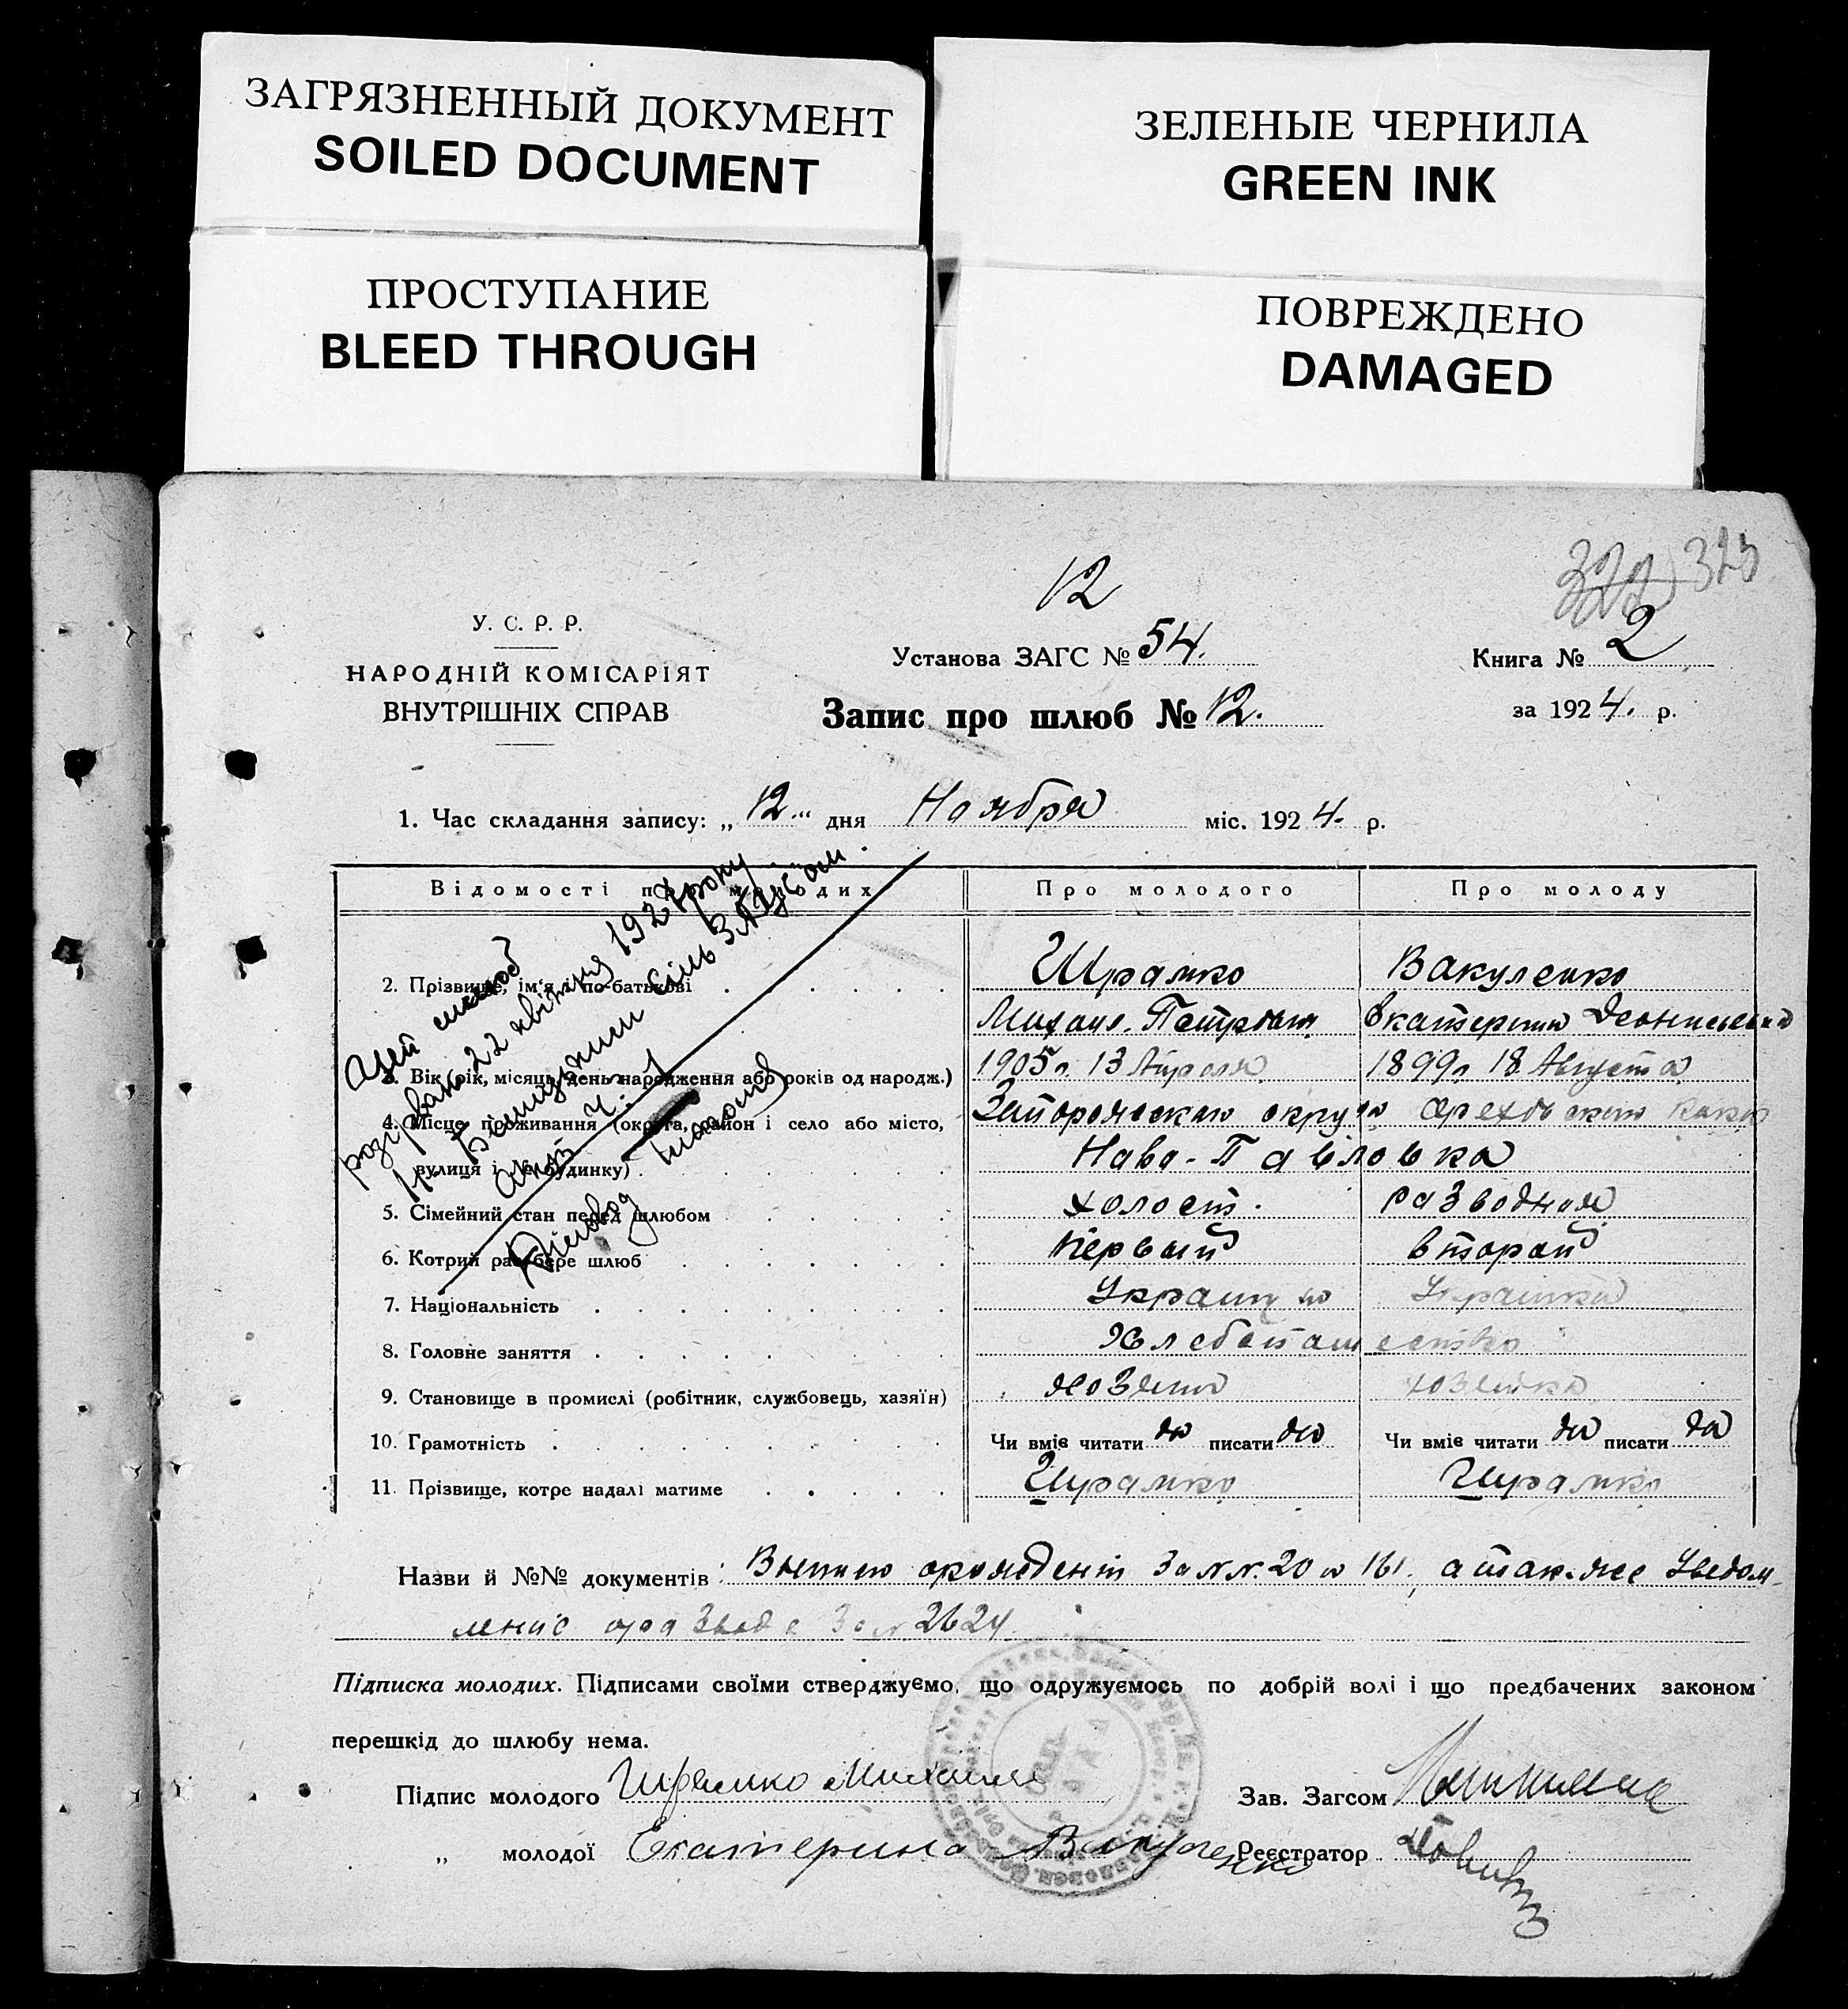 ЗАГРЯЗНЕННЫЙ ДОКУМЕНТ
SOILED DOCUMENT
ЗЕЛЕНЫЕ ЧЕРНИЛА
GREEN INK
ПРОСТУПАНИЕ
BLEED THROUGH
ПОВРЕЖДЕНО
DAMAGED
323
12
У. С. Р. Р.
НАРОДНІЙ КОМІСАРІЯТ
ВНУТРІШНІХ СПРАВ
Установа ЗАГС № 54.
Запис про шлюб № 12.
Книга № 2
за 1924. р.
1. Час складання запису: „12" дня Ноября міс. 1924. р.
Відомості про молодих Про молодого Про молоду
Цей шлюб
розірвано 22 квітня 1927 року
сіль ЗАГСом
Діловод
2. Прізвище, ім'я і по-батькові Шрамко Вакуленко
Михаил Петрович Екатерина
3. Вік (рік, місяць, день народження або років од народж.) 1905 г. 13 Апреля 1899 г. 18 Августа
4. Місце проживання (округа, район і село або місто, Запорожского округа Ореховского
вулиця і № будинку) Нова-Павловка
5. Сімейний стан перед шлюбом холост. разводная
6. Котрий раз бере шлюб первый второй
7. Національність Украинец Украинка
8. Головне заняття Хлебопашество
9. Становище в промислі (робітник, службовець, хазяїн) хозяин хозяйка
10. Грамотність Чи вміє читати да писати да Чи вміє читати да писати да
11. Прізвище, котре надалі матиме Шрамко Шрамко
Назви й №№ документів: за №№ 20 и 161, а так-же уведом-
ление о разводе за № 2624.
Підписка молодих. Підписами своїми стверджуємо, що одружуємось по добрій волі і що предбачених законом
перешкід до шлюбу нема.
Підпис молодого Шрамко Михаил
Зав. Загсом
„ молодої Екатерина Вакуленко
Реєстратор